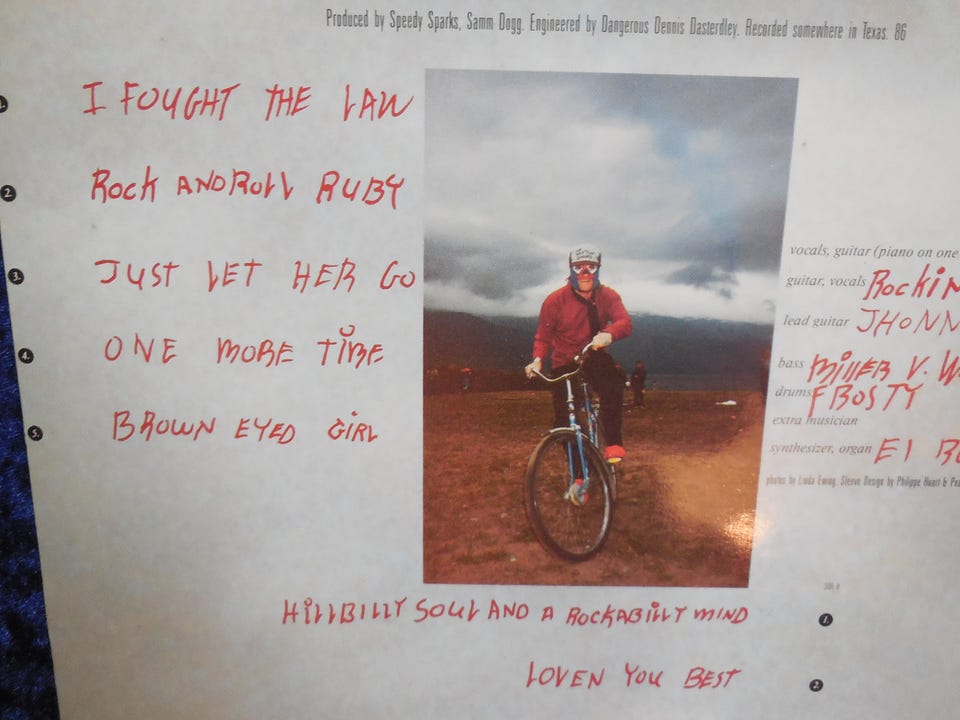 Produced by Speedy Sparks, Samm Dogg. Engineered by Dangerous Dennis Dasterdley. Recorded somewhere in Texas. 86
1. I FOUGHT THE LAW
2. ROCK AND ROLL RUBY
3. JUST LET HER GO
4. ONE MORE TIME
5. BROWN EYED GIRL
vocals, guitar (piano on one
guitar, vocals ROCKIN
lead guitar JHONN
bass MILLER V. W
drums FROSTY
extra musician
synthesizer, organ El
photos by Linda Ewing. Sleeve Design by Philippe Huart &
HILLBILLY SOUL AND A ROCKABILLY MIND 1.
LOVEN YOU BEST 2